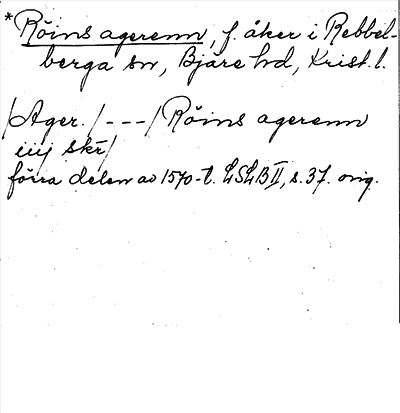 *Röins agerenn, f. åker i Rebbel-
berga sn, Bjäre hd, Krist. l.
/Ager./---/Röins agerenn
iiij skr/
förra delen av 1570-t. LSLB II, s. 37. orig.